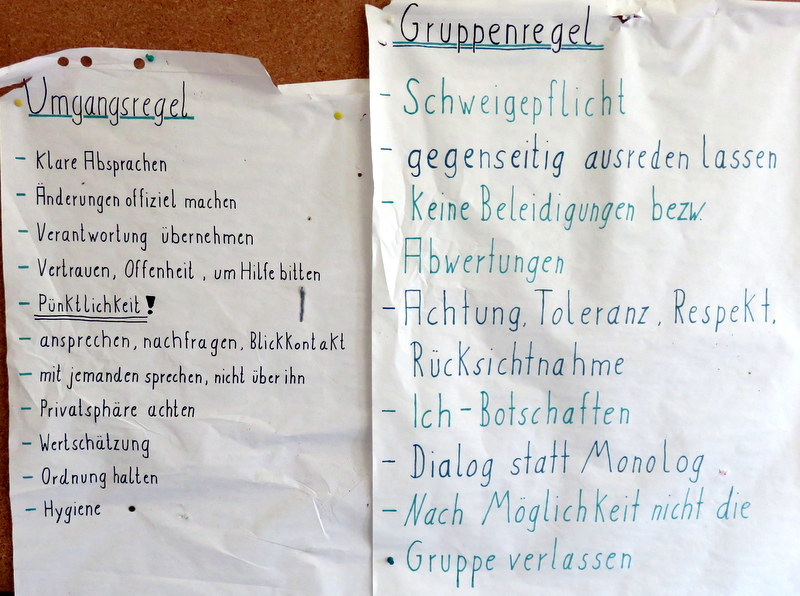 Umgangsregel
- Klare Absprachen
- Änderungen offiziel machen
- Verantwortung übernehmen
- Vertrauen, Offenheit, um Hilfe bitten
- Pünktlichkeit!
- ansprechen, nachfragen, Blickkontakt
- mit jemanden sprechen, nicht über ihn
- Privatsphäre achten
- Wertschätzung
- Ordnung halten
- Hygiene
Gruppenregel
- Schweigepflicht
- gegenseitig ausreden lassen
- Keine Beleidigungen bezw.
Abwertungen
- Achtung, Toleranz, Respekt,
Rücksichtnahme
- Ich-Botschaften
- Dialog statt Monolog
- Nach Möglichkeit nicht die
Gruppe verlassen